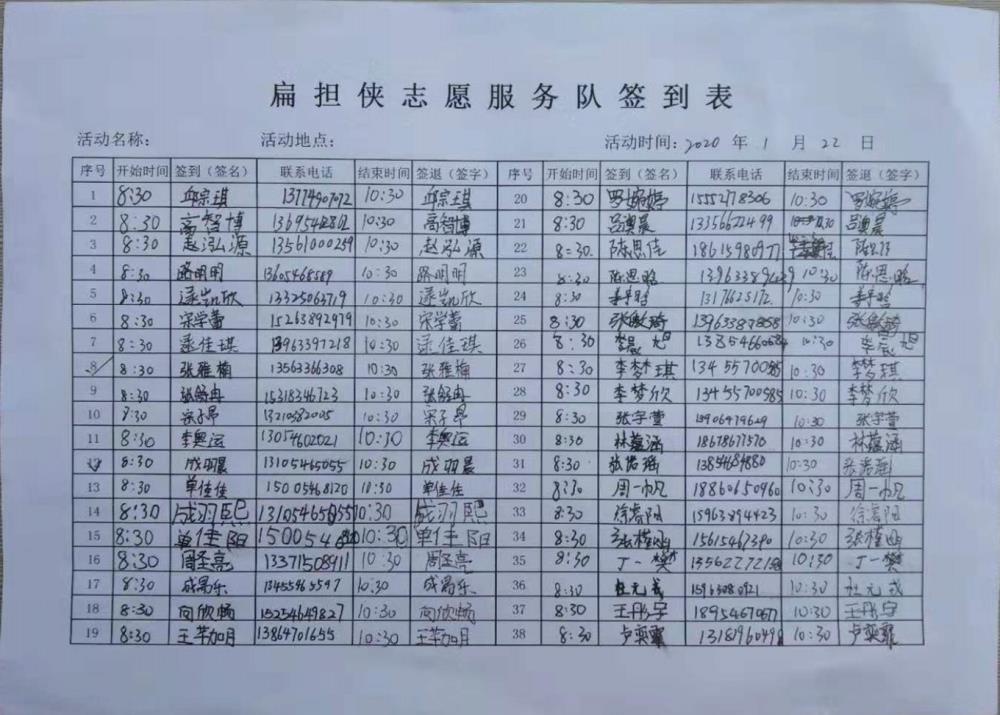 扁担侠志愿服务队签到表
活动名称: 活动地点: 活动时间: 2020 年 1 月 22 日
序号 开始时间 签到（签名） 联系电话 结束时间 签退（签字） 序号 开始时间 签到（签名） 联系电话 结束时间 签退（签字）
1 8:30 邱宗琪 10:30 邱宗琪 20 8:30 15552778306 10:30
2 8:30 高智博 10:30 高智博 21 8:30 吕澳晨 13356622499 10:30 吕澳晨
3 8:30 赵泓源 13561000259 10:30 赵泓源 22 8:30 陈思佳 18615980977
4 8:30 路明明 13605468589 10:30 路明明 23 8:30 陈思晗 10:30 陈思晗
5 8:30 逯凯欣 13325063719 10:30 逯凯欣 24 8:30 13176625172 10:30
6 8:30 宋学蕾 15263892979 10:30 宋学蕾 25 8:30 张敏琦 13963387858 10:30 张敏琦
7 8:30 逯佳琪 13963397218 10:30 逯佳琪 26 8:30 李晨旭 10:30 李晨旭
8 8:30 张雅楠 13563366308 10:30 张雅楠 27 8:30 李梦琪 10:30 李梦琪
9 8:30 张舒冉 15318346723 10:30 张舒冉 28 8:30 李梦欣 13455700585 10:30 李梦欣
10 8:30 宋子昂 13210582005 10:30 宋子昂 29 8:30 张宇萱 10:30 张宇萱
11 8:30 李奥运 13054602021 10:30 李奥运 30 8:30 林蕴涵 18678677570 10:30 林蕴涵
12 8:30 成羽晨 13105465055 10:30 成羽晨 31 8:30 张诺瑶 10:30 张诺瑶
13 8:30 单佳佳 15005468120 10:30 单佳佳 32 8:30 周一帆 18860650960 10:30 周一帆
14 8:30 成羽熙 10:30 成羽熙 33 8:30 15963894423 10:30
15 8:30 单佳阳 10:30 单佳阳 34 8:30 15615467390 10:30
16 8:30 周圣亮 13371508911 10:30 周圣亮 35 8:30 丁一樊 10:30 丁一樊
17 8:30 成易乐 13455465597 10:30 成易乐 36 8:30 杜元戎 10:30 杜元戎
18 8:30 向欣畅 15254649827 10:30 向欣畅 37 8:30 王彤宇 10:30 王彤宇
19 8:30 13864701655 10:30 38 8:30 卢奕霏 10:30 卢奕霏